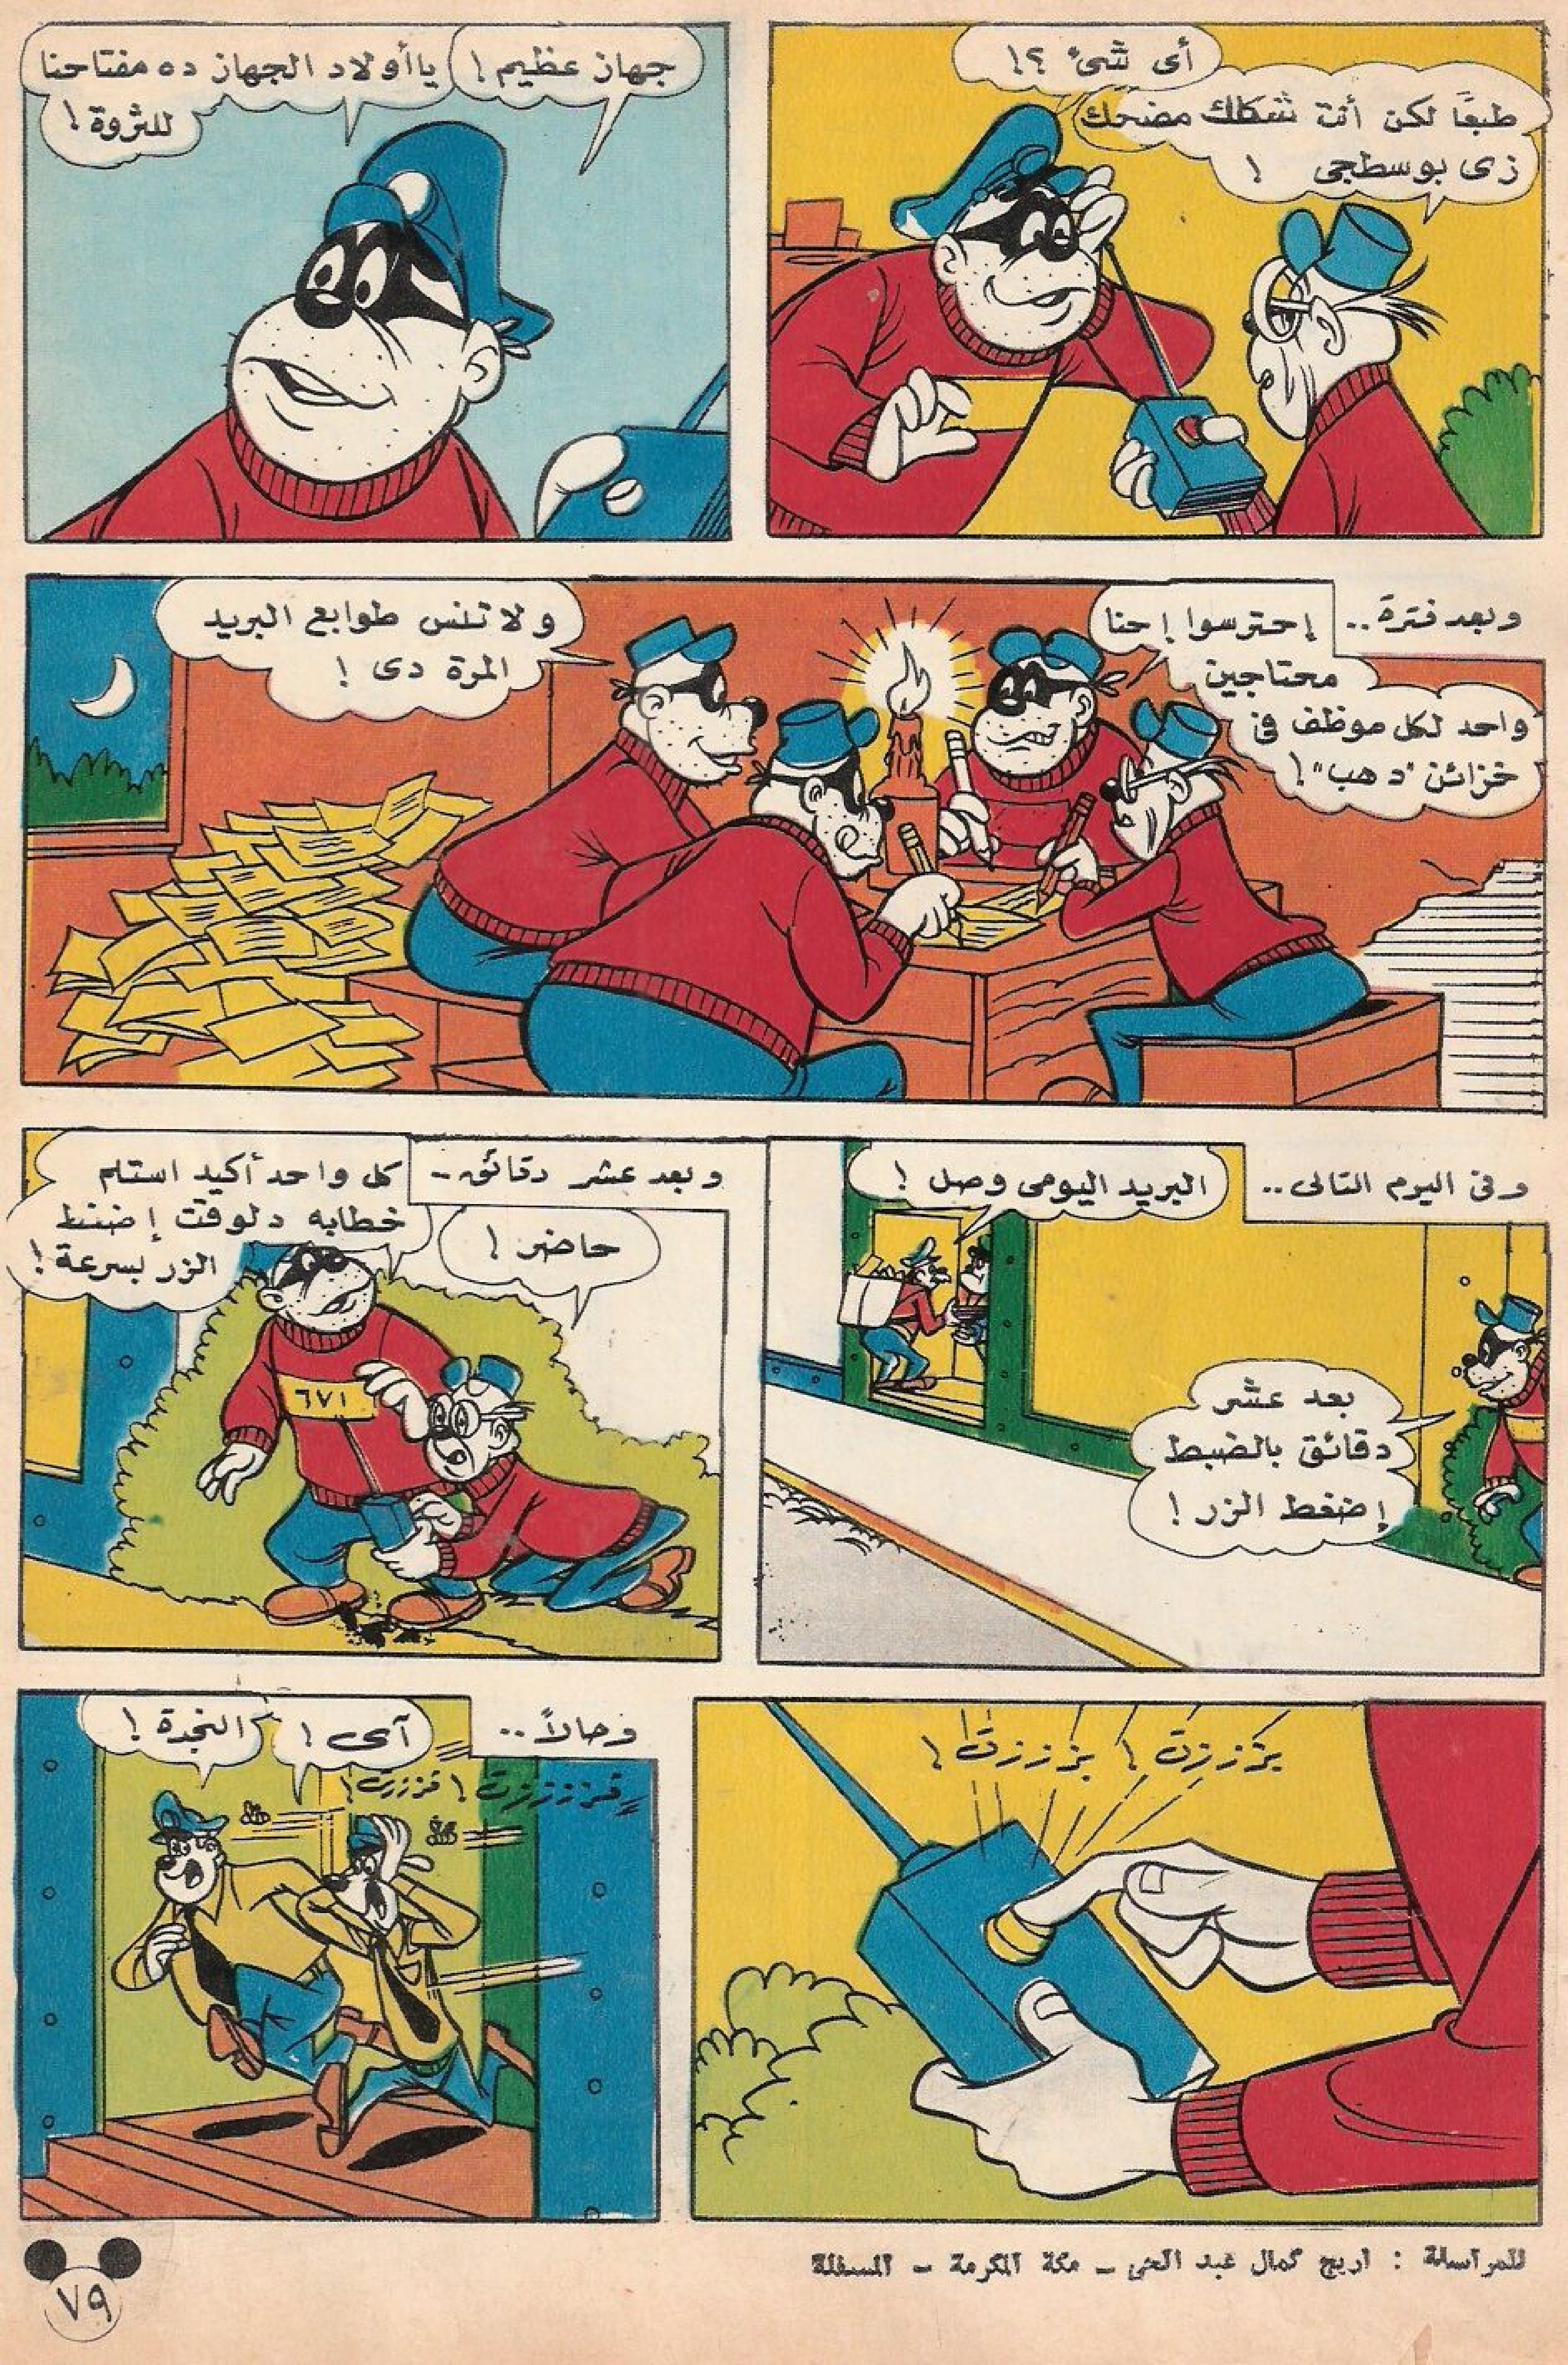 أى شئ ؟!
طبعًا لكن أنت شكلك مضحك
زى بوسطجى !
جهاز عظيم !
ياأولاد الجهاز ده مفتاحنا
للثروة !
وبعد فترة ..
إحترسوا إحنا
محتاجين
واحد لكل موظف فى
خزائن "دهب" !
ولا تنس طوابع البريد
المرة دى !
وفى اليوم التالى ..
البريد اليومى وصل !
بعد عشر
دقائق بالضبط
إضغط الزر !
وبعد عشر دقائق -
كل واحد أكيد استلم
خطابه دلوقت إضغط
الزر بسرعة !
حاضر !
٦٧١
بززززت ! بزززت !
وحالاً ..
آى !
النجدة !
للمراسلة : اريج كمال عبد الحى - مكة المكرمة - المسفلة
٧٩